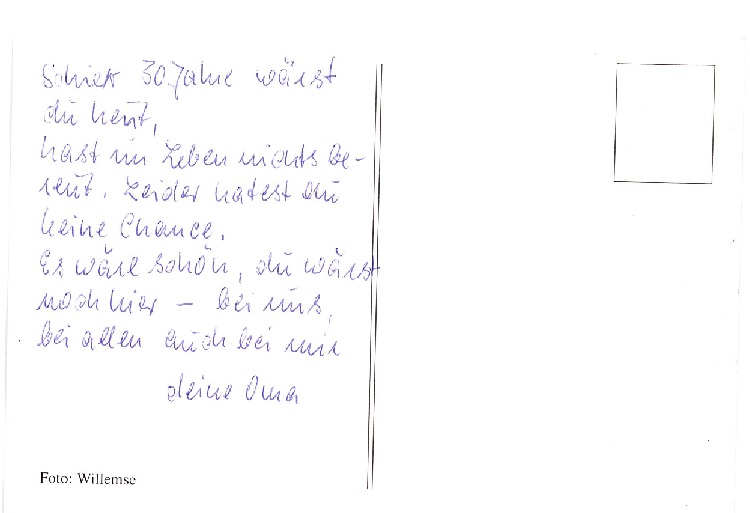 30 Jahre wärst
du heut,
hast im Leben nichts be-
reut. Leider hatest du
keine Chance.
Es wäre schön, du wärst
noch hier – bei uns,
bei allen auch bei mir
deine Oma
Foto: Willemse